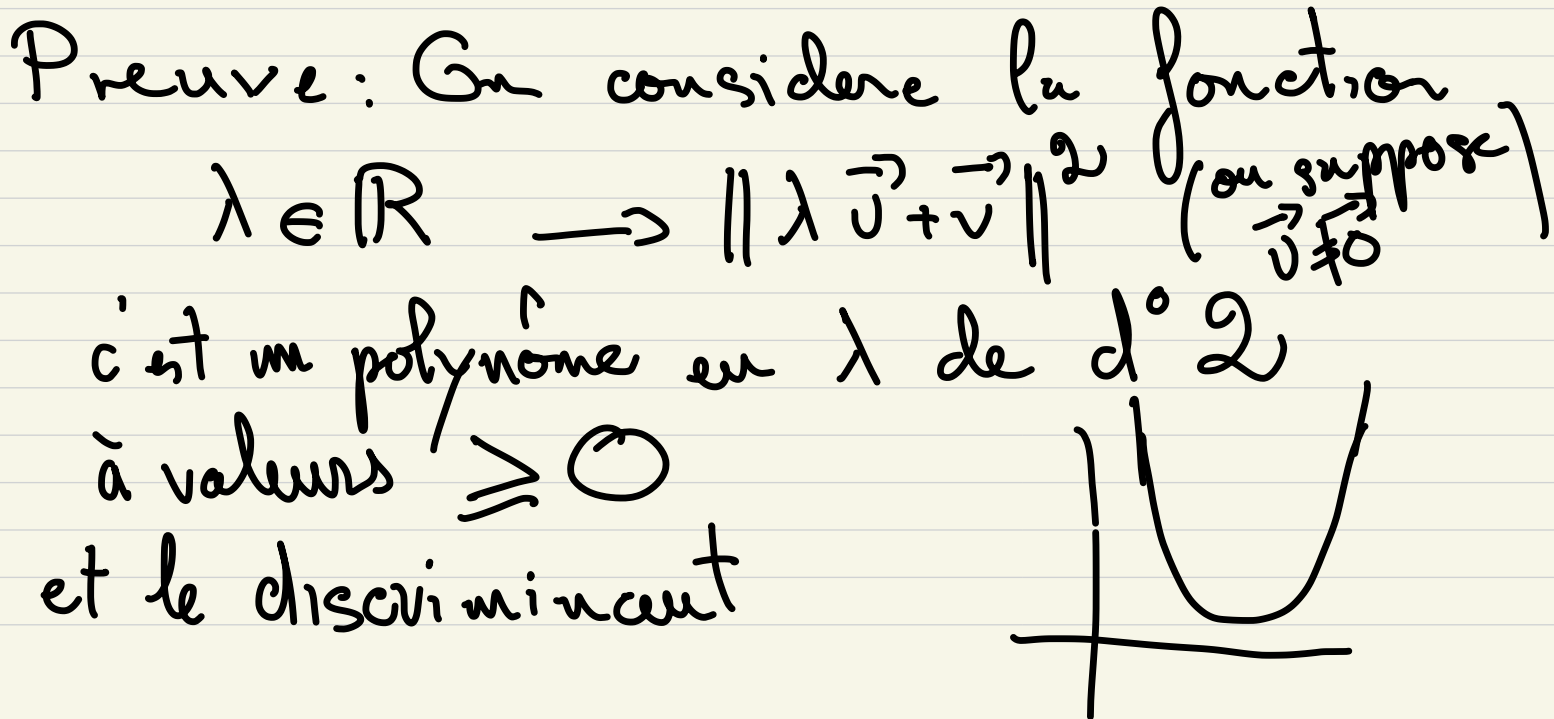 Preuve : On considere la fonction
λ ∈ ℝ ⟶ ‖λ u⃗ + v⃗‖² (on suppose
u⃗ ≠ 0⃗)
c'est un polynôme en λ de d° 2
à valeurs ≥ 0
et le discriminant